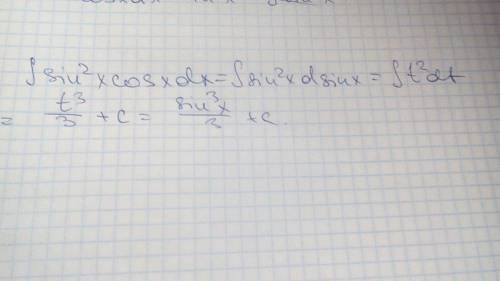 ∫sin²x cosx dx = ∫sin²x dsinx = ∫t²dt
= t³/3 + c = sin³x/3 + c.